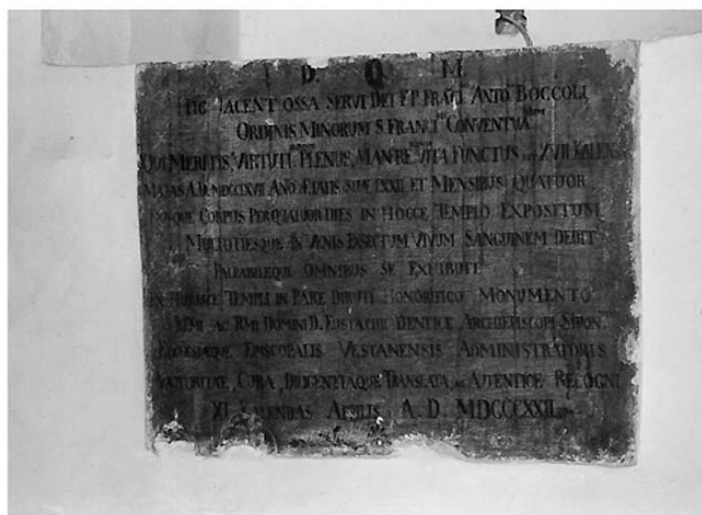 D. O. M.
HIC JACENT OSSA SERVI DEI ANTO. BOCCOLI
ORDINIS MINORUM S. FRANCI CONVENTUA
QUI MERITIS, VIRTUTI PLENUS, MANFRE VITA FUNCTUS XVII KALEN
MAJAS A.D. MDCCLXVII ÆTATIS SUÆ LXXII ET MENSIBUS QUATUOR
CORPUS PER QUATUOR DIES IN HOCCE TEMPLO EXPOSITUM
MULTOTIESQUE IN VENIS EXSECTUM VIVUM SANGUINEM DEDIT
OMNIBUS SE EXHIBUIT
EX HUJUSCE TEMPLI IN PARE DIRUTI HONORIFICO MONUMENTO
AC RMI DOMINI D. EUSTACHII DENTICE ARCHIEPISCOPI SIPON.
ECCLESIÆQUE EPISCOPALIS VESTANENSIS ADMINISTRATORIS
CURA, TRANSLATA AUTENTICE RECOGNI
XI KALENDAS APRILIS A. D. MDCCCXXII